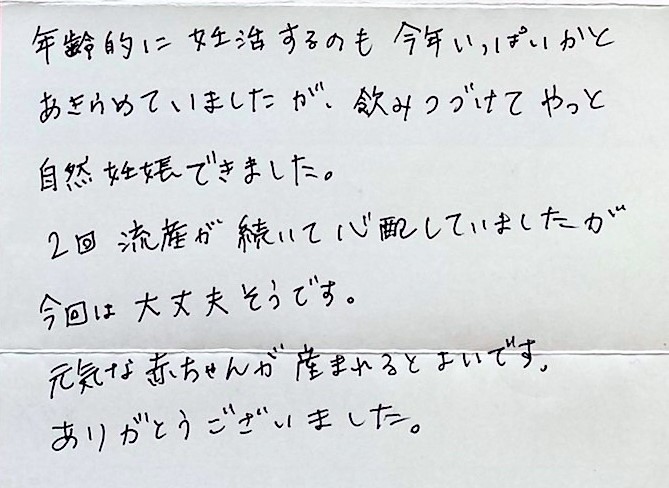 年齢的に妊活するのも今年いっぱいかと
あきらめていましたが、飲みつづけてやっと
自然妊娠できました。
2回流産が続いて心配していましたが
今回は大丈夫そうです。
元気な赤ちゃんが産まれるとよいです。
ありがとうございました。